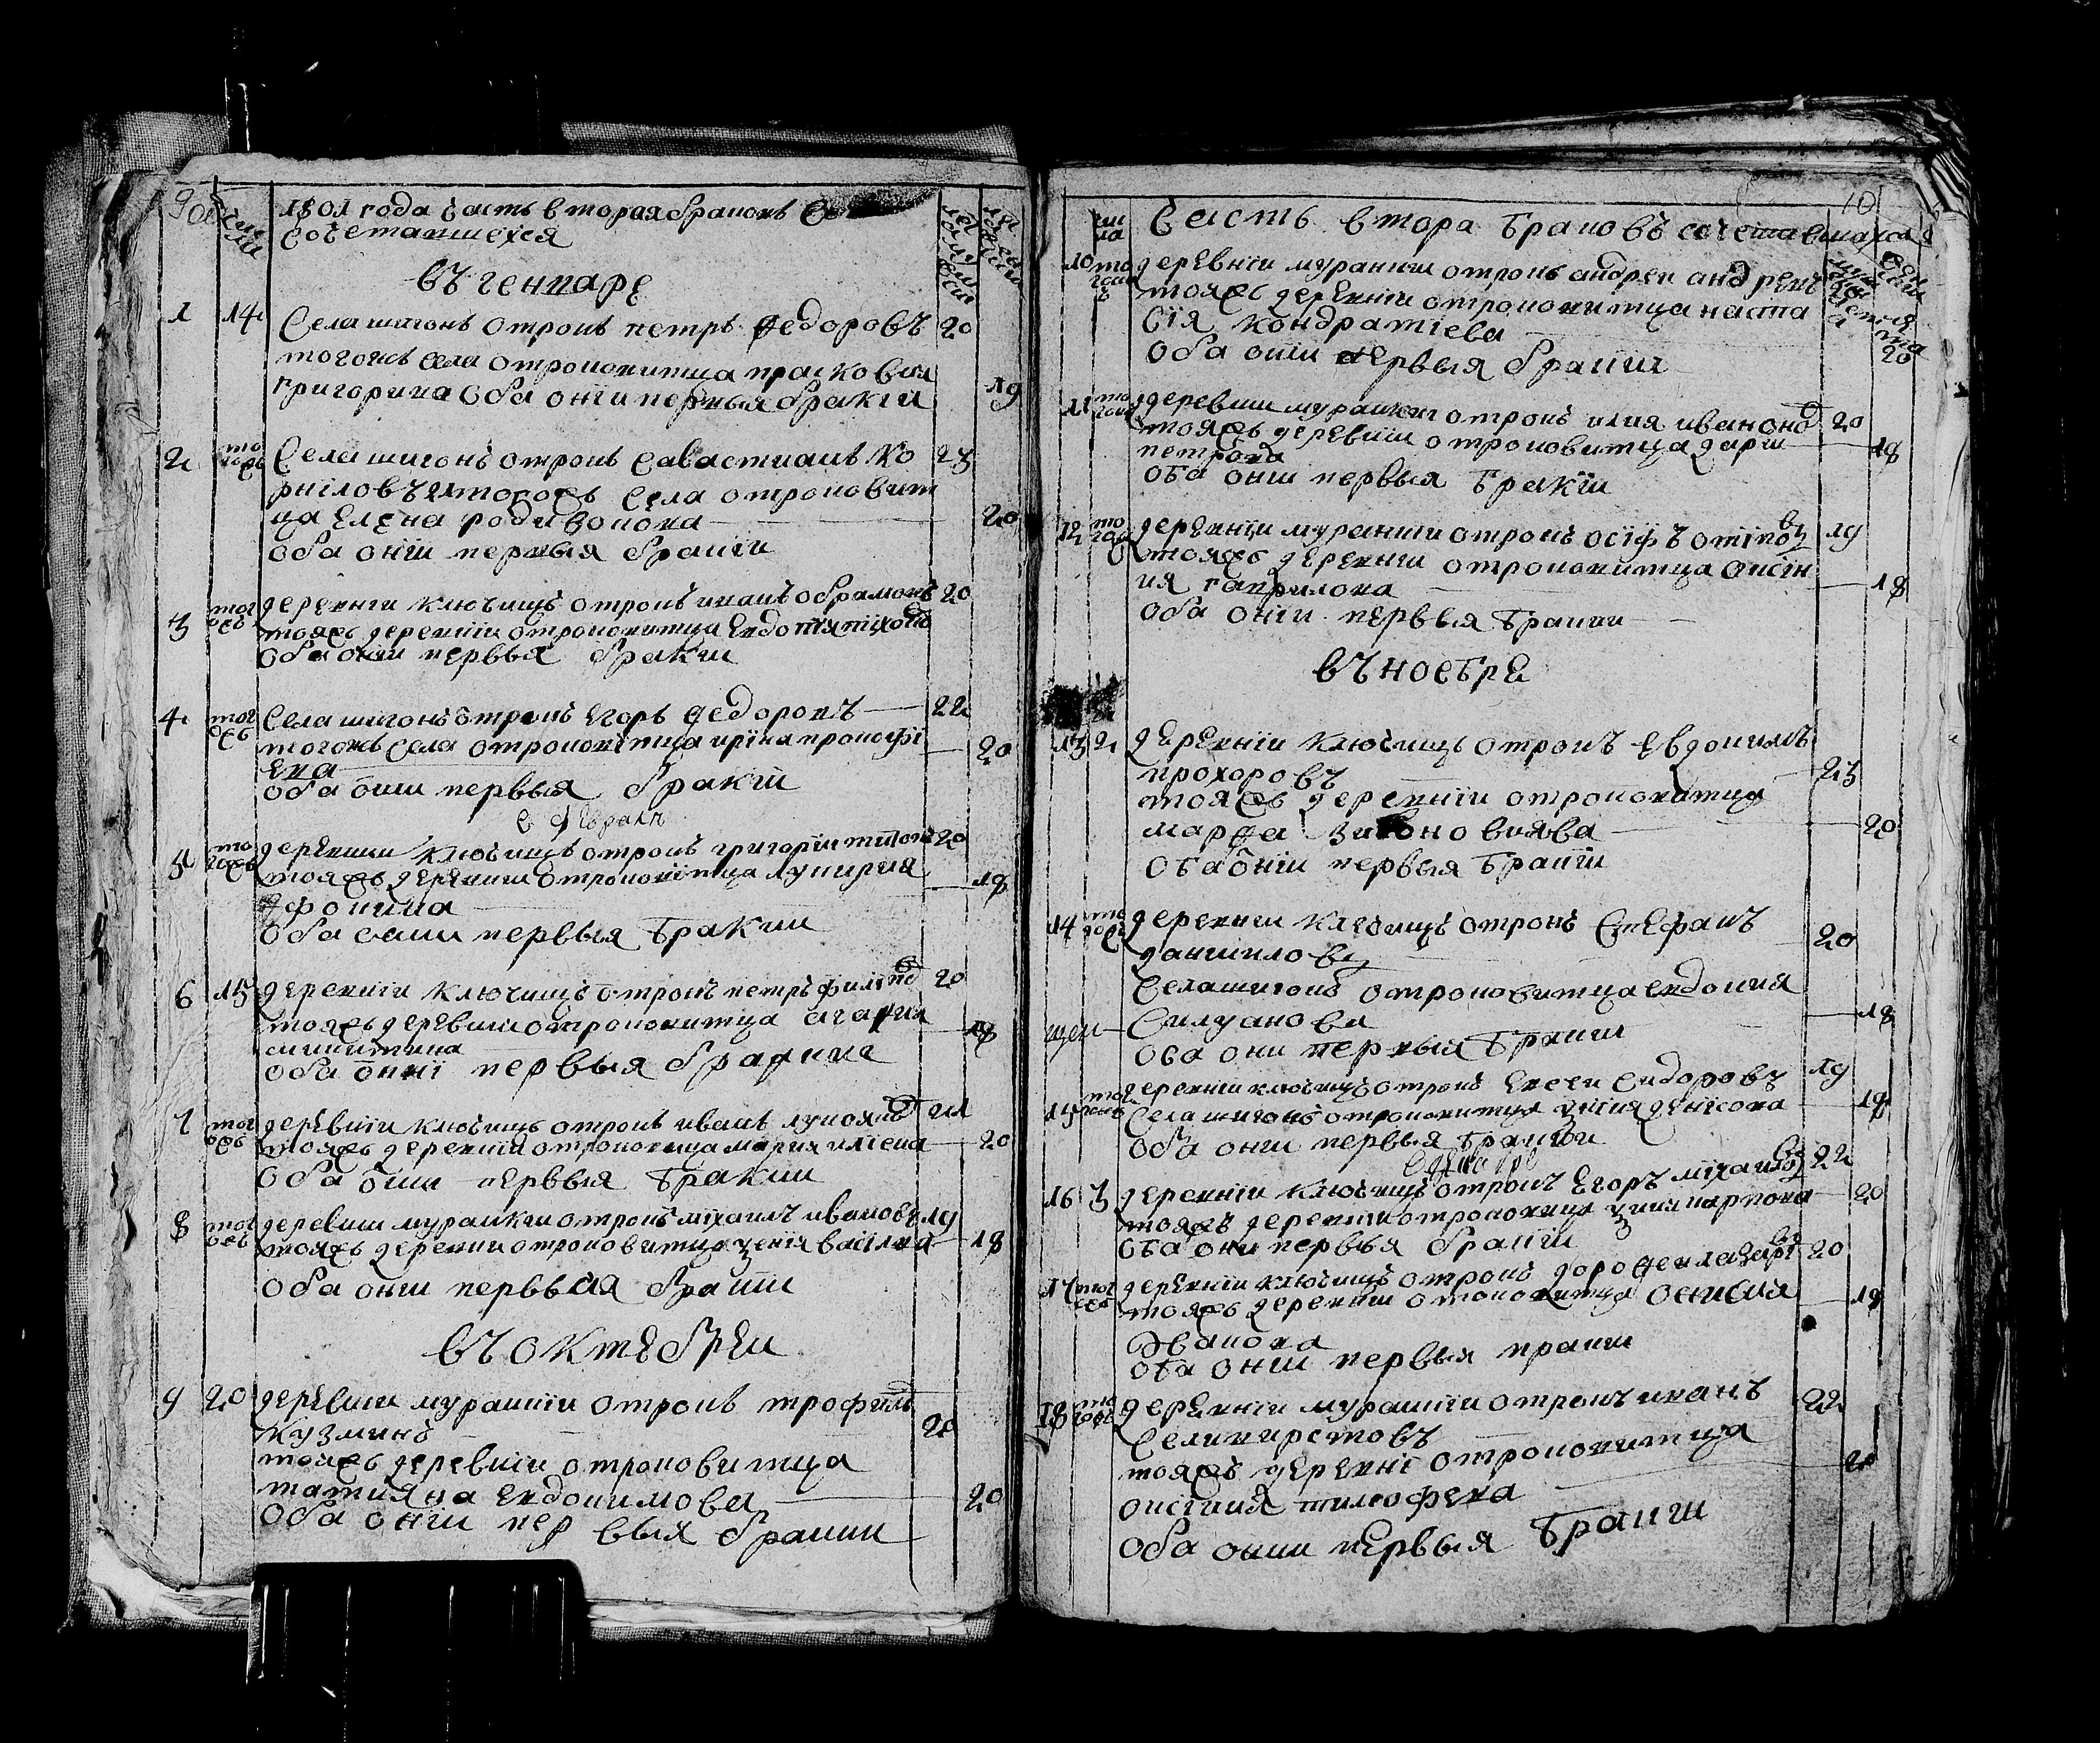 1801 года часть вторая браковъ
сочетавшихся
въ генваре
1 14 Села шигонъ отрокъ петръ федоровъ 20
тогожъ села отроковитца прасковия
григорива оба онїи первыя бракїи 19
2 тогожъ Села шигонъ отрокъ савастианъ ко 23
рниловъ тогожъ села отроковит
ца елена родивонова 20
оба онїи первыя браки
3 тогожъ деревни ключищъ отрокъ иванъ обрамовъ 20
тояжъ деревнїи отроковитца евдотия тихоно
оба онїи первыя браки
4 тогожъ Села шигонъ отрокъ егоръ федоровъ 22
тогожъ села отроковитца ирина прокофї 20
ева
оба онїи первыя бракїи
в февралѣ
5 тогожъ деревни ключищъ отрокъ григории титовъ 20
тояжъ деревни отроковитца лукирия 18
афонина
оба онии первыя бракии
6 15 деревнїи ключищъ отрокъ петръ филипо 20
тояжъ деревни отроковитца агафия 18
никитина
оба онїи первыя бракии
7 тогожъ деревнїи ключищъ отрокъ иванъ лукоянов 21
тояжъ деревнїи отроковица мария илїева 20
оба онии первыя бракии
8 тогожъ деревни муранкии отрокъ михаилъ ивановъ 19
тояжъ деревни отроковитца ксения васїлива 18
оба онїи первыя браки
въ октебреи
9 20 деревни муранкїи отрокъ трофимъ
кузминъ 20
тояжъ деревнїи отроковитца
татияна евдокимова 20
оба онїи первыя бракии
10
часть втора браковъ сочетавшихся
10 тогожъ деревнїи муранкии отрокъ андреи андреивъ
тояжъ деревнїи отроковитца наста
сїя кондратїева 20
оба онїи первыя бракии
11 тогожъ деревнии муранкии отрокъ илия ивановъ 20
тояжъ деревнїи отроковитца дария 18
петрова
оба онии первыя бракїи
12 тогожъ деревнїи муранкїи отрокъ осїфъ 19
тояжъ деревнїи отроковитца аксїн
ия гаврилова 18
оба онїи первыя бракии
въ ноебре
13 2 деревнїи ключищъ отрокъ евдокимъ
прохоровъ 23
тояжъ деревнїи отроковитца
марфа 20
оба онїи первыя бракїи
14 тогожъ деревнїи ключищъ отрокъ стефанъ
даниловъ 20
Села шигонъ отроковитца евдокия
силуанова 18
оба они первыя браки
15 тогожъ деревнїи ключищъ отрокъ евсеи сидоровъ 19
Села шигонъ отроковитца ксїния денїсова 18
оба они первыя бракїи
в декабре
16 3 деревнїи ключищъ отрокъ егоръ михаиловъ 22
тояжъ деревнїи отроковица ксиния карпова 20
оба онїи первыя браки
17 тогожъ деревнїи ключищъ отрокъ дорофеи лазарївъ 20
тояжъ деревнїи отроковитца 18
иванова
оба онїи первыя браки
18 тогожъ деревнїи муранкїи отрокъ иванъ 22
селиверстовъ
тояжъ деревнї отроковитца 20
аксїния тимофева
оба онїи первыя браки